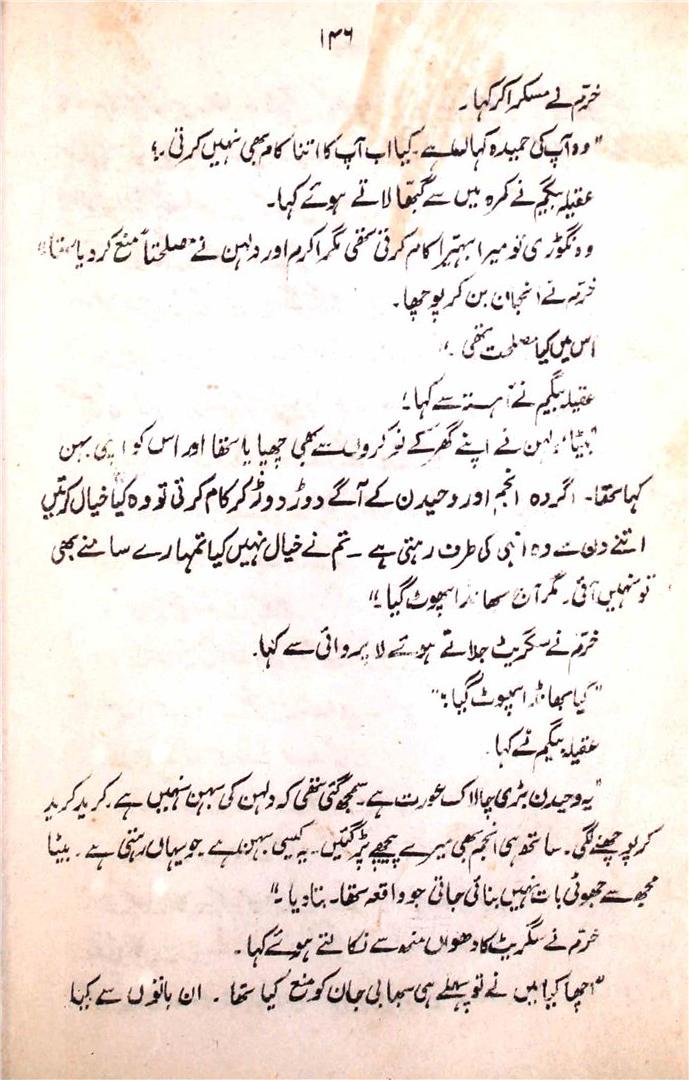 ۱۴۶
خرّم نے مسکرا کر کہا۔
"وہ آپ کی حمیدہ کہاں ہے۔ کیا اب آپ کا اتنا کام بھی نہیں کرتی۔"
عقیلہ بیگم نے کمرہ میں سے گمبھا لاتے ہوئے کہا۔
وہ نگوڑی تو میرا بہتیرا کام کرتی تھی مگر اکرم اور دلہن نے مصلحتاً منع کر دیا تھا"
خرّم نے انجان بن کر پوچھا۔
اس میں کیا مصلحت تھی۔"
عقیلہ بیگم نے آہستہ سے کہا۔
"بیٹا، دلہن نے اپنے گھر کے نوکروں سے بھی چھپایا تھا اور اس کو اپنی بہن
کہا تھا۔ اگر وہ انجم اور وحیدن کے آگے دوڑ دوڑ کر کام کرتی تو وہ کیا خیال کرتیں
اتنے دن سے وہ انہی کی طرف رہتی ہے۔ تم نے خیال نہیں کیا تمہارے سامنے بھی
تو نہیں آئی۔ مگر آج بھانڈا پھوٹ گیا۔"
خرّم نے سگریٹ جلاتے ہوئے لا پروائی سے کہا۔
"کیا بھانڈا پھوٹ گیا۔"
عقیلہ بیگم نے کہا۔
"یہ وحیدن بڑی چالاک عورت ہے۔ سمجھ گئی تھی کہ دلہن کی بہن نہیں ہے۔ کرید کرید
کر پوچھنے لگی۔ ساتھ ہی انجم بھی میرے پیچھے پڑ گئیں۔ یہ کیسی بہن ہے جو یہاں رہتی ہے۔ بیٹا
مجھ سے جھوٹی بات نہیں بنائی جاتی جو واقعہ تھا۔ بتا دیا۔"
خرّم نے سگریٹ کا دھواں منہ سے نکالتے ہوئے کہا۔
"اچھا کیا میں نے تو پہلے ہی بھابی جان کو منع کیا تھا۔ ان باتوں سے کیا